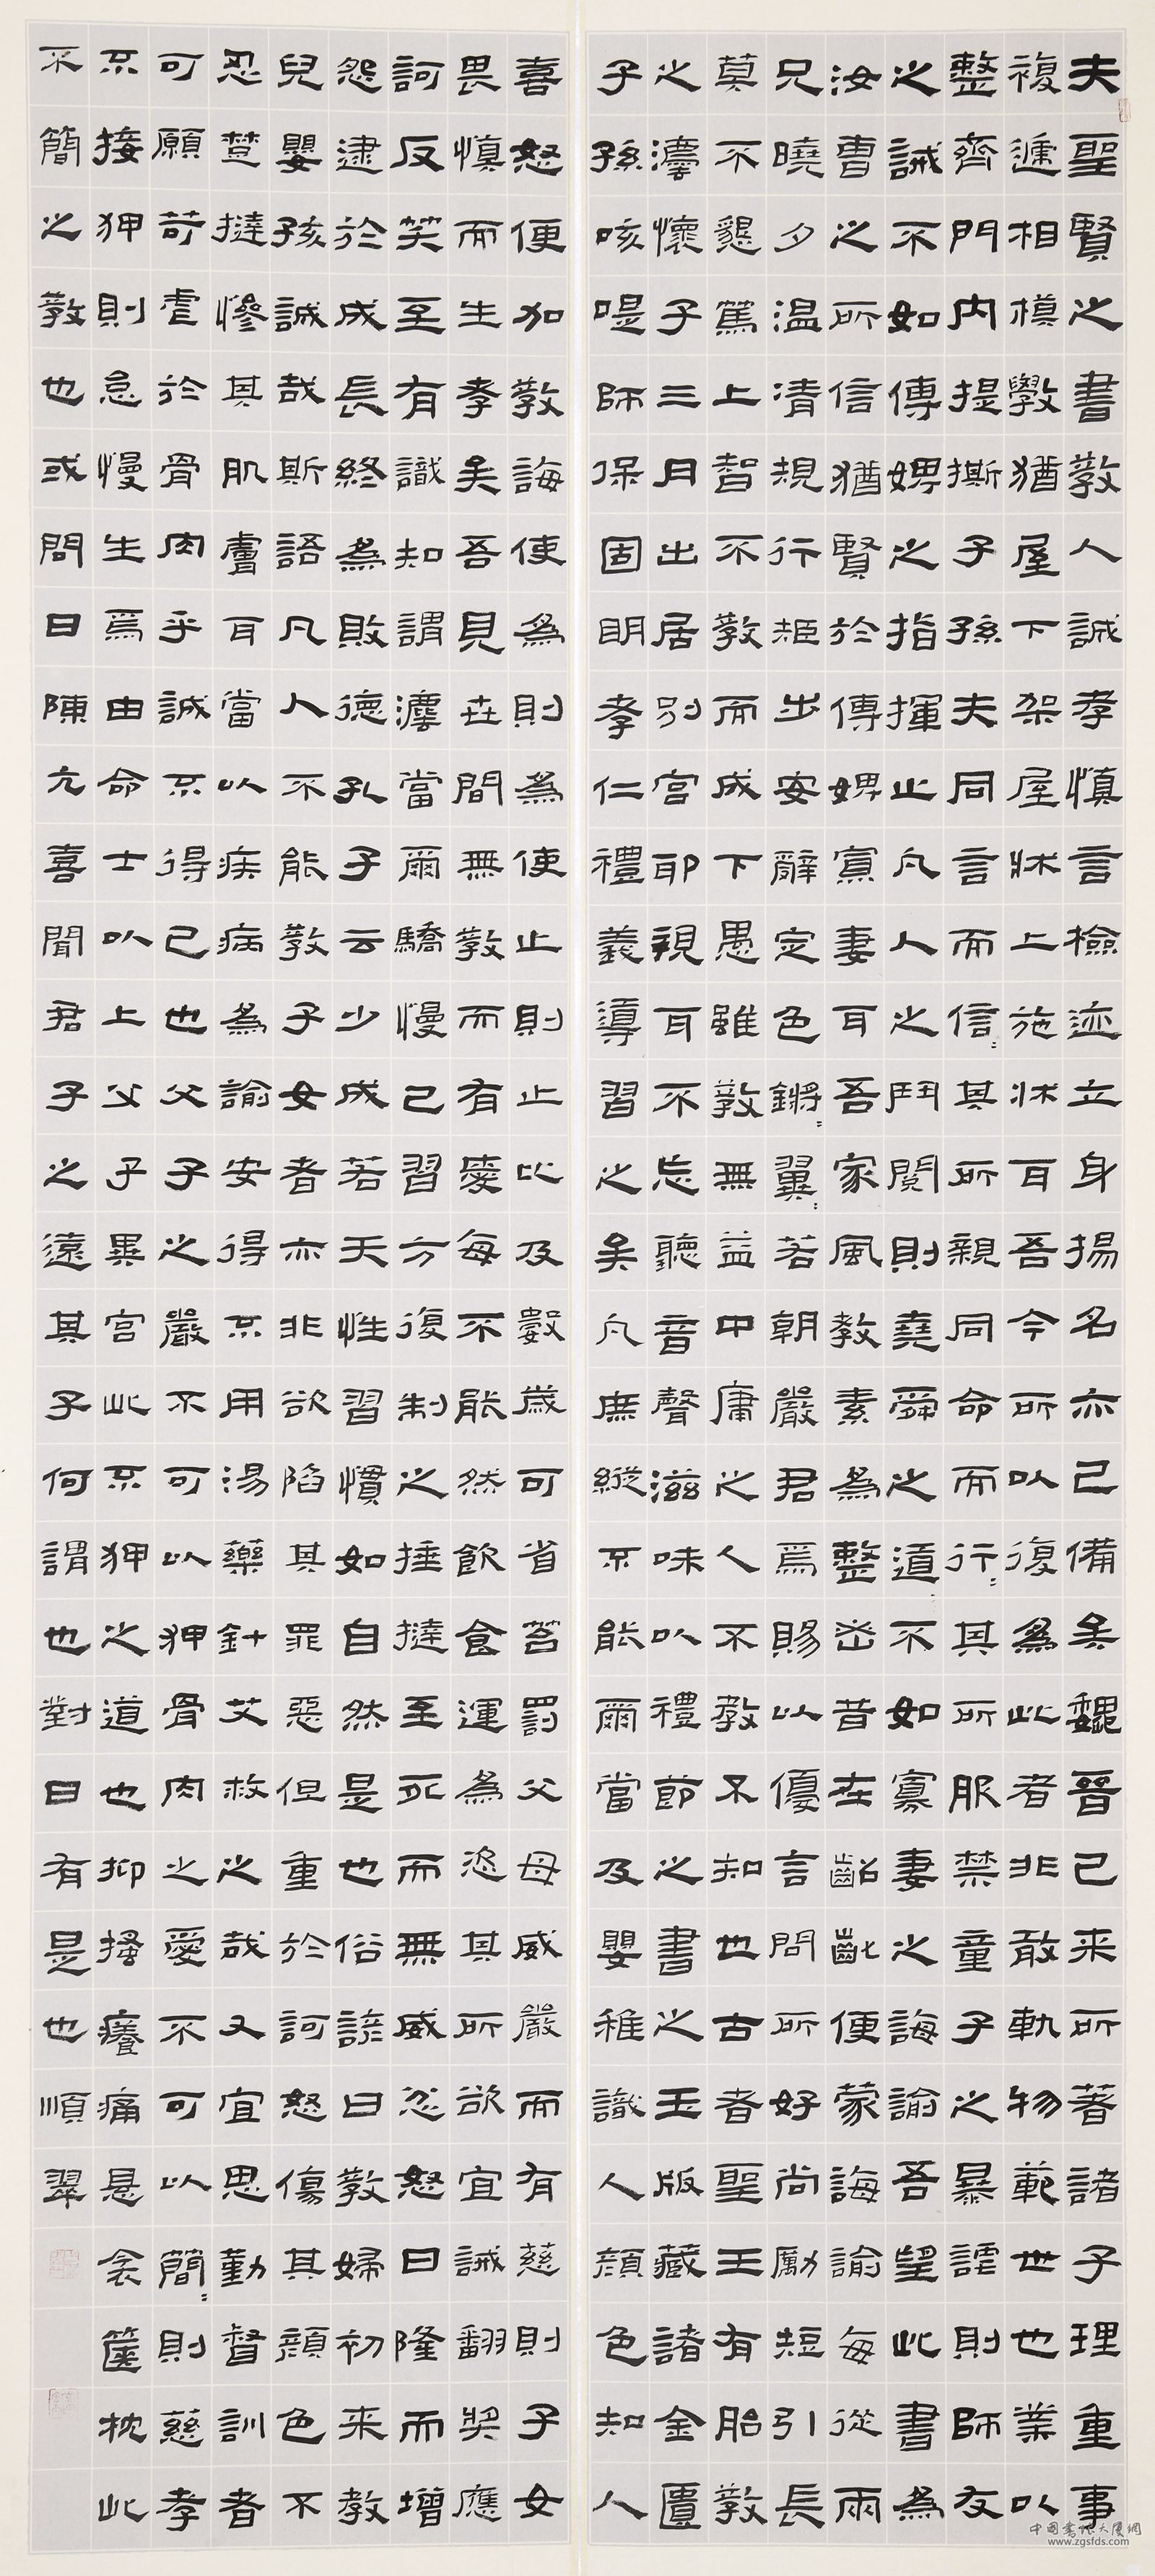 夫聖賢之書教人誠孝慎言檢迹立身揚名亦已備矣魏晉已来所著諸子理重事
複遞相模斆猶屋下架屋牀上施牀耳吾今所以復為此者非敢軌物範世也業以
整齊門內提撕子孫夫同言而信〻其所親同命而行〻其所服禁童子之暴謔則師友
之誡不如傅婢之指揮止凡人之鬥鬩則堯舜之道不如寡妻之誨諭吾望此書為
汝曹之所信猶賢於傅婢寡妻耳吾家風教素為整密昔在齠齔便蒙誨諭每從兩
兄曉夕温凊規行矩步安辭定色鏘〻翼〻若朝嚴君焉賜以優言問所好尚勵短引長
莫不懇篤上智不教而成下愚雖教無益中庸之人不教不知也古者聖王有胎教
之灋懷子三月出居別宮耶視耳不忘聽音聲滋味以禮節之書之玉版藏諸金匱
子孫咳㖷師保固明孝仁禮義導習之矣凡庶縱不能爾當及嬰稚識人顏色知人
喜怒便加教誨使為則為使止則止比及數歲可省笞罰父母威嚴而有慈則子女
畏慎而生孝矣吾見世間無教而有愛每不能然飲食運為恣其所欲宜誡翻獎應
訶反笑至有識知謂灋當爾驕慢已習方復制之捶撻至死而無威忿怒日隆而增
怨逮於成長終為敗德孔子云少成若天性習慣如自然是也俗諺曰教婦初来教
兒嬰孩誠哉斯語凡人不能教子女者亦非欲陷其罪惡但重於訶怒傷其顏色不
忍楚撻慘其肌膚耳當以疾病為諭安得不用湯藥針艾救之哉又宜思勤督訓者
可願苛虐於骨肉乎誠不得已也父子之嚴不可以狎骨肉之愛不可以簡〻則慈孝
不接狎則急慢生焉由命士以上父子異宮此不狎之道也抑搔癢痛悬衾篋枕此
不簡之教也或問曰陳亢喜聞君子之遠其子何謂也對曰有是也順翠
中国书法大厦網
www.zgsfds.com